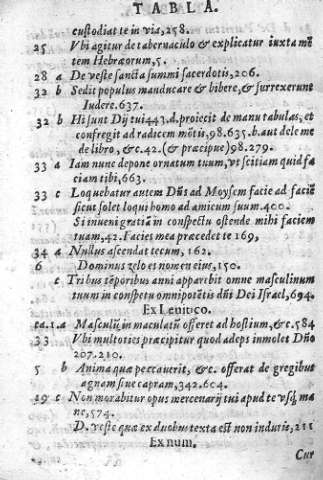 TABLA.
custodiat te in via, 258.
25 Vbi agitur de tabernaculo & explicatur iuxta mẽ
tem Hebræorum, 5.
28 a De veste sancta summi sacerdotis, 206.
32 b Sedit populus manducare & bibere, & surrexerunt
ludere. 637.
32 b Hi sunt Dij tui 443. d. proiecit de manu tabulas, et
confregit ad radicem mõtis, 98. 635. b. aut dele me
de libro, &c. 42. (& præcipue) 98. 279.
33 a Iam nunc depone ornatum tuum, vt sciam quid fa
ciam tibi, 663.
33 c Loquebatur autem Dñs ad Moysem facie ad faciẽ
sicut solet loqui homo ad amicum suum. 400.
Si inueni gratiã in conspectu ostende mihi faciem
tuam, 42. Facies mea præcedet te 169,
34 a Nullus ascendat tecum, 162.
6 Dominus zelotes nomen eius, 150.
c Tribus tẽporibus anni apparebit omne masculinum
tuum in conspectu omnipotẽtis dñi Dei Israel, 694.
Ex Leuitico.
ca. 1. a Masculũ, immaculatũ offeret ad hostium, &c. 584
33 Vbi multoties præcipitur quod adeps immolet Dño
207. 210.
5 b Anima quæ peccauerit, &c. offerat de gregibus
agnam siue capram, 342. 604.
19 c Non morabitur opus mercenarij tui apud te vsq; ma
ne, 574.
D. veste quæ ex duobus texta est non induris, 211
Ex num.
Cur